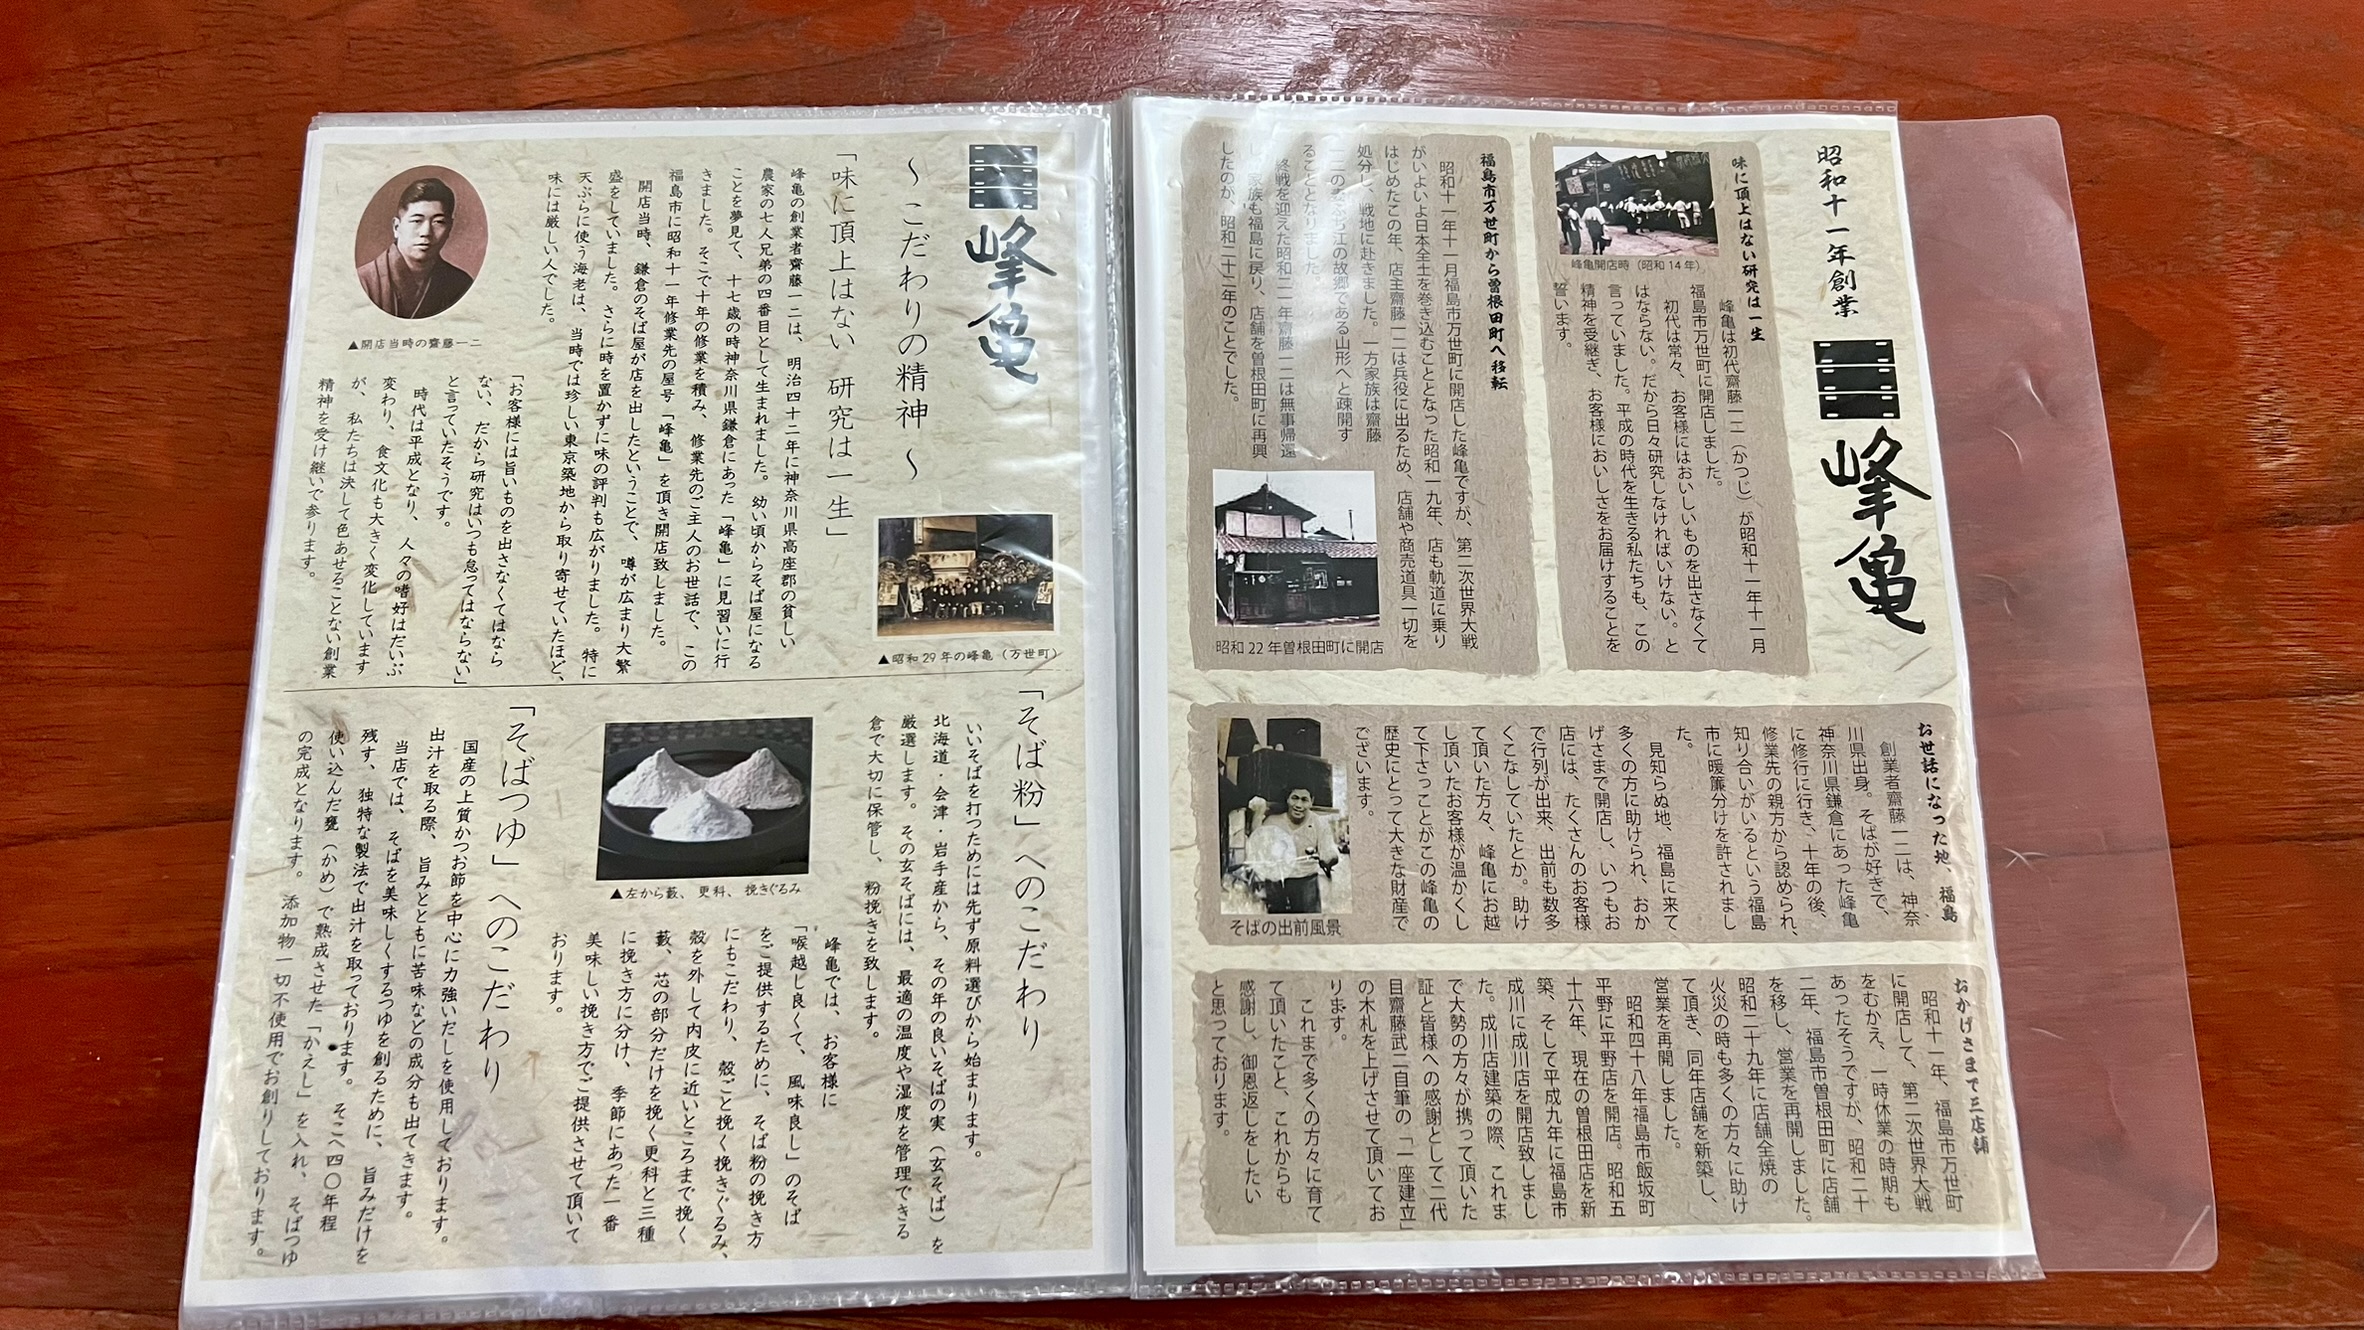 昭和十一年創業
峰亀
味に頂上はない研究は一生
峰亀は初代齋藤一二（かつじ）が昭和十一年十一月
福島市万世町に開店しました。
初代は常々、お客様にはおいしいものを出さなくて
はならない。だから日々研究しなければいけない。と
言っていました。平成の時代を生きる私たちも、この
精神を受継ぎ、お客様においしさをお届けすることを
誓います。
峰亀開店時（昭和14年）
福島市万世町から曽根田町へ移転
昭和十一年十一月福島市万世町に開店した峰亀ですが、第二次世界大戦
がいよいよ日本全土を巻き込むこととなった昭和一九年、店も軌道に乗り
はじめたこの年、店主齋藤一二は兵役に出るため、店舗や商売道具一切を
処分し、戦地に赴きました。一方家族は齋藤
一二の妻ふぢ江の故郷である山形へと疎開す
ることとなりました。
終戦を迎えた昭和二一年齋藤一二は無事帰還
し、家族も福島に戻り、店舗を曽根田町に再興
したのが、昭和二十二年のことでした。
昭和22年曽根田町に開店
お世話になった地、福島
創業者齋藤一二は、神奈
川県出身。そばが好きで、
神奈川県鎌倉にあった峰亀
に修行に行き、十年の後、
修業先の親方から認められ、
知り合いがいるという福島
市に暖簾分けを許されまし
た。
見知らぬ地、福島に来て
多くの方に助けられ、おか
げさまで開店し、いつもお
店には、たくさんのお客様
で行列が出来、出前も数多
くこなしていたとか。助け
て頂いた方々、峰亀にお越
し頂いたお客様が温かくし
て下さっことがこの峰亀の
歴史にとって大きな財産で
ございます。
そばの出前風景
おかげさまで三店舗
昭和十一年、福島市万世町
に開店して、第二次世界大戦
をむかえ、一時休業の時期も
あったそうですが、昭和二十
二年、福島市曽根田町に店舗
を移し、営業を再開しました。
昭和二十九年に店舗全焼の
火災の時も多くの方々に助け
て頂き、同年店舗を新築し、
営業を再開しました。
昭和四十八年福島市飯坂町
平野に平野店を開店。昭和五
十六年、現在の曽根田店を新
築、そして平成九年に福島市
成川に成川店を開店致しまし
た。成川店建築の際、これま
で大勢の方々が携って頂いた
証と皆様への感謝として二代
目齋藤武二自筆の「一座建立」
の木札を上げさせて頂いてお
ります。
これまで多くの方々に育て
て頂いたこと、これからも
感謝し、御恩返しをしたい
と思っております。
峰亀
～こだわりの精神～
「味に頂上はない　研究は一生」
▲昭和29年の峰亀（万世町）
峰亀の創業者齋藤一二は、明治四十二年に神奈川県高座郡の貧しい
農家の七人兄弟の四番目として生まれました。幼い頃からそば屋になる
ことを夢見て、十七歳の時神奈川県鎌倉にあった「峰亀」に見習いに行
きました。そこで十年の修業を積み、修業先のご主人のお世話で、この
福島市に昭和十一年修業先の屋号「峰亀」を頂き開店致しました。
開店当時、鎌倉のそば屋が店を出したということで、噂が広まり大繁
盛をしていました。さらに時を置かずに味の評判も広がりました。特に
天ぷらに使う海老は、当時では珍しい東京築地から取り寄せていたほど、
味には厳しい人でした。
▲開店当時の齋藤一二
「お客様には旨いものを出さなくてはなら
ない、だから研究はいつも怠ってはならない」
と言っていたそうです。
時代は平成となり、人々の嗜好はだいぶ
変わり、食文化も大きく変化しています
が、私たちは決して色あせることない創業
精神を受け継いで参ります。
「そば粉」へのこだわり
いいそばを打つためには先ず原料選びから始まります。
北海道・会津・岩手産から、その年の良いそばの実（玄そば）を
厳選します。その玄そばには、最適の温度や湿度を管理できる
倉で大切に保管し、粉挽きを致します。
▲左から藪、更科、挽きぐるみ
峰亀では、お客様に
「喉越し良くて、風味良し」のそば
をご提供するために、そば粉の挽き方
にもこだわり、殻ごと挽く挽きぐるみ、
殻を外して内皮に近いところまで挽く
藪、芯の部分だけを挽く更科と三種
に挽き方に分け、季節にあった一番
美味しい挽き方でご提供させて頂いて
おります。
「そばつゆ」へのこだわり
国産の上質かつお節を中心に力強いだしを使用しております。
出汁を取る際、旨みとともに苦味などの成分も出てきます。
当店では、そばを美味しくするつゆを創るために、旨みだけを
残す、独特な製法で出汁を取っております。そこへ四〇年程
使い込んだ甕（かめ）で熟成させた「かえし」を入れ、そばつゆ
の完成となります。添加物一切不使用でお創りしております。